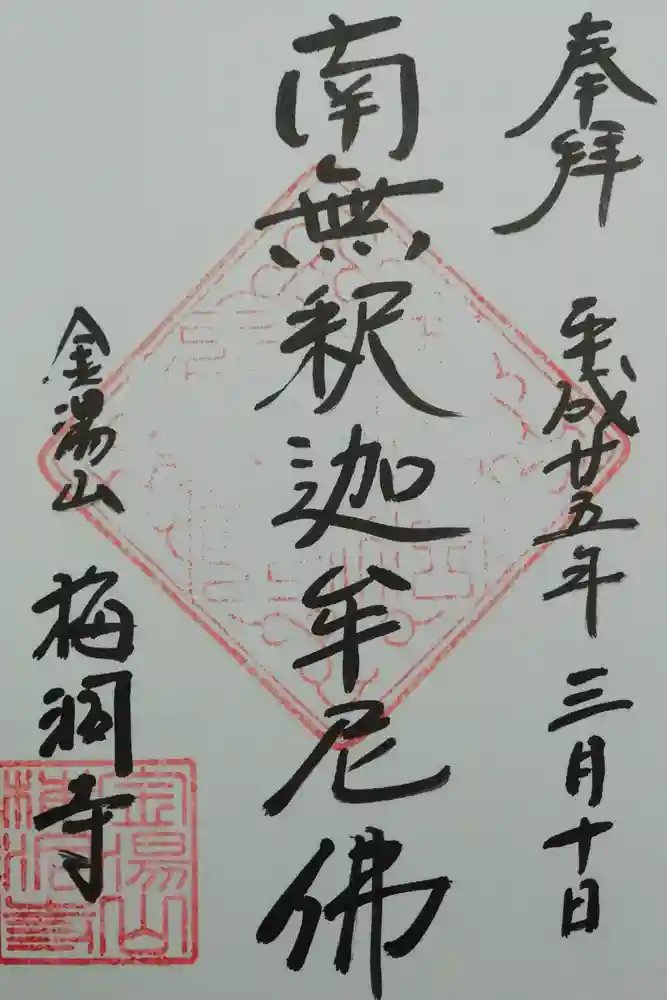 奉拝 平成廿五年三月十日
南無釈迦牟尼佛
金湯山 梅洞寺
金湯山
梅洞寺